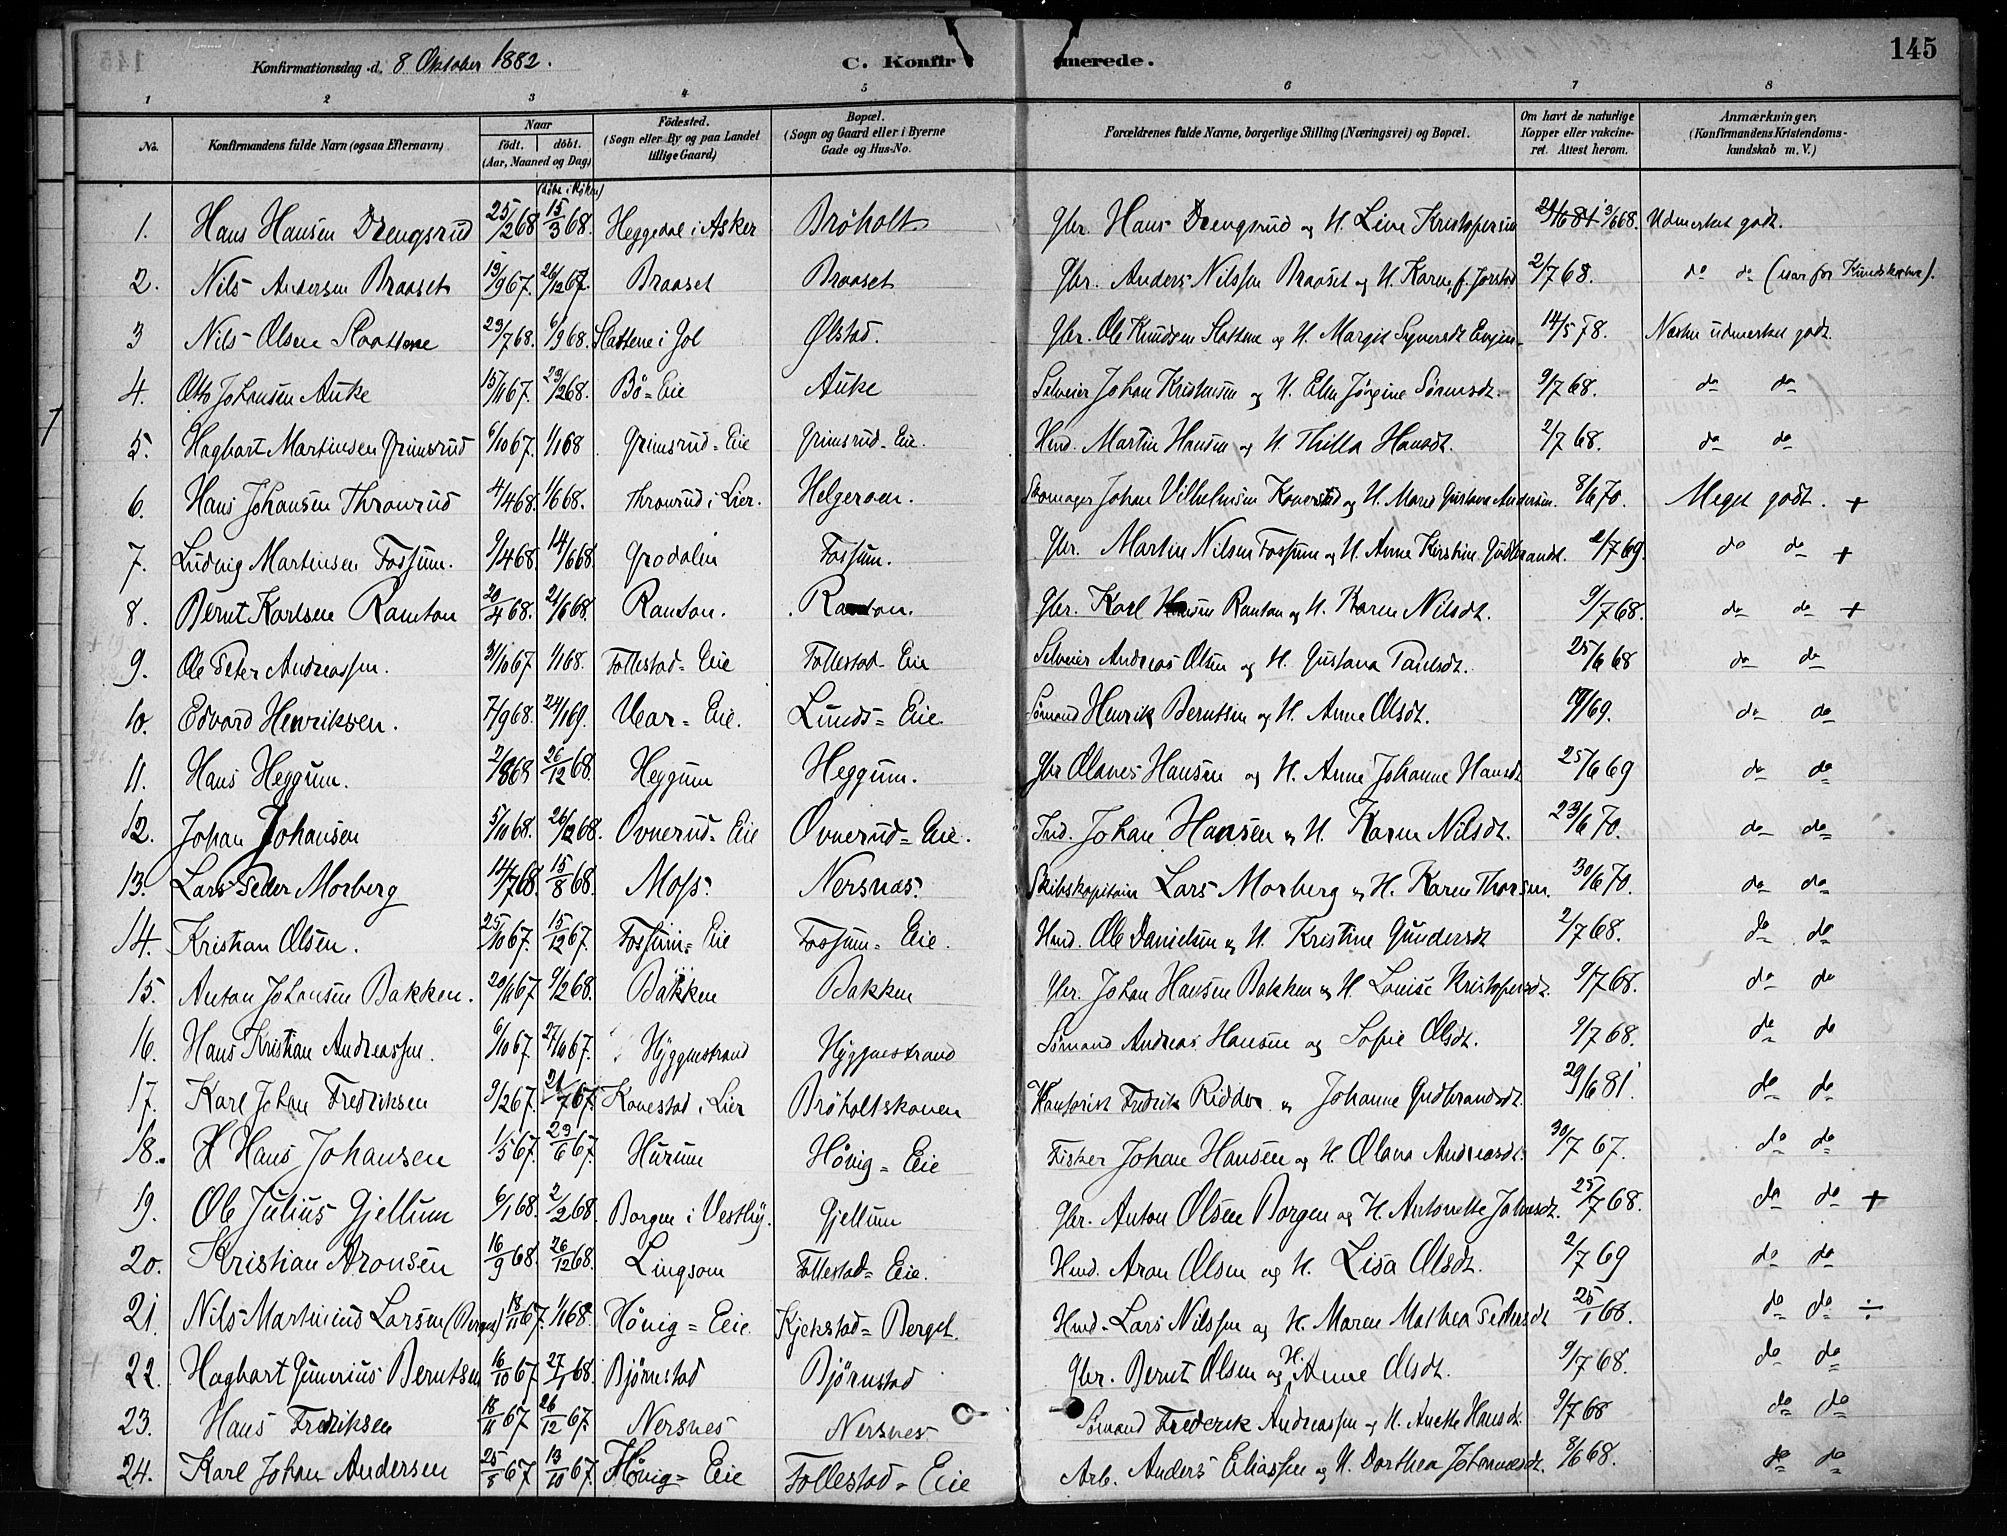 145
Konfirmationsdag d. 8 Oktober 1882.
C. Konfirmerede.
1 2 3 4 5 6 7 8
No.
Konfirmandens fulde Navn (ogsaa Efternavn)
Naar
født. døbt.
(Aar, Maaned og Dag)
Födested.
(Sogn eller By og paa Landet
tillige Gaard)
Bopæl.
(Sogn og Gaard eller i Byerne
Gade og Hus-No.
Forældrenes fulde Navne, borgerlige Stilling (Næringsvei) og Bopæl.
Om havt de naturlige
Kopper eller vakcine-
ret. Attest herom.
Anmærkninger,
(Konfirmandens Kristendoms-
kundskab m. V.)
1. Hans Hansen Drengsrud 25/2 68. 15/3 68. Heggedal i Asker Brøholt Gbr. Hans Drengsrud og H. Live Kristofersen 3/6 68. Udmerket godt.
2. Nils Andersen Braaset 19/9 67. 26/12 67. Braaset Braaset Gbr. Anders Nilssen Braaset og H. Karen f. Jorstad 2/7 68. do do
3 Nils Olsen Slaattene 29/7 68. 6/9 68. Slattene i Gol Ølstad. Gbr. Ole Knudsen Slattene og H. Margit Syversdt. 14/5 78. Næsten udmerket godt
4. Otto Johansen Auke 15/11 67. 23/2 68. Bö-Eie Auke Selveier Johan Kristensen og H. Elen Jørgine Sørensdt. 9/7 68. do do
5. Hagbart Martinsen Grimsrud 6/10 67. 1/1 68 Grimsrud-Eie Grimsrud-Eie. Hmd. Martin Hansen og H. Thilla Hansdt. 2/7 68. do do
6. Hans Johansen Thronrud 4/4 68. 1/6 68. Thronrud i Lier. Helgeroen. Skomager Johan Vilhelmsen og H. Marie Gustava Andersen. 8/6 70. Meget godt. +
7. Ludvig Martinsen Fossum. 9/4 68. 14/6 68. Grodalen Fossum. Gbr. Martin Nilsen Fossum og H. Anne Kirstine Gudbrandt. 2/7 69. do do +
8. Bernt Karlsen Ramton 20/4 68. 21/6 68. Ramton. Ramton. Gbr. Karl Hansen Ramton og H. Karen Nilsdt. 9/7 68. do do +
9. Ole Peter Andreassen. 31/10 67 1/1 68. Follestad-Eie Follestad-Eie Selveier Andreas Olsen og H. Gustava Paulsdt. 25/6 68 do do
10. Edvard Henriksen. 7/9 68. 24/1 69. Uear-Eie. Lunds-Eie Sømand Henrik Berntsen og H. Anne Olsdt. do do
11. Hans Heggum. 2/8 68 26/12 68. Heggum Heggum. Gbr Olaves Hansen og H. Anne Johanne Hansdt 25/6 69 do do
12. Johan Johansen 5/10 68. 26/12 68. Ovnerud-Eie Ovnerud-Eie. Ind. Johan Hansen og H. Karen Nilsdt. 23/6 70. do do
13. Lars Peder Morberg 14/7 68. 15/8 68. Moss. Nersnæs. Skibskapitain Lars Morberg og H. Karen Thorsen. 30/6 70. do do
14. Kristian Olsen. 25/10 67. 15/12 67. Fossum-Eie Fossum-Eie. Hmd. Ole Danielsen og H. Kristine Gundersdt 2/7 68. do do
15. Anton Johansen Bakken. 20/11 67 9/2 68. Bakken Bakken Gbr. Johan Hansen Bakken og H. Louise Kristofersdt. 9/7 68. do do
16. Hans Kristian Andreassen. 6/10 67. 27/10 67. Hyggenstrand Hyggenstrand Sømand Andreas Hansen og Sofie Olsdt. 9/7 68. do do
17. Karl Johan Fredriksen 9/12 67. 21/7 67. Kovestad i Lier Brøholtskoven Kontorist Fredrik Ridder og Johanne Gudbrandsdt. 29/6 81. do do
18. Hans Johansen 1/5 67. 23/6 67. Hurum Hönig-Eie Fisker Johan Hansen og H. Olava Andreasdt. 30/7 67. do do
19. Ole Julius Gjellum 6/1 68. 2/2 68. Borgen i Vestby. Gjellum Gbr. Anton Olsen Borgen og H. Antonette Johnsdt. 25/7 68. do do +
20. Kristian Aronsen 16/9 68. 26/12 68. Lingsom Follestad-Eie. Hmd. Aron Olsen og H. Lisa Olsdt. 2/7 69 do do
21. Nils Martinius Larsen 18/11 67. 1/1 68. Hönig-Eie Kjekstad-Berget. Hmd. Lars Nilssen og H. Maren Mathea Pettersdt 25/1 68. do do ÷
22. Hagbart Gunerius Berntsen 16/10 67. 27/1 68. Bjørnstad Bjørnstad Gbr. Bernt Olsen og H. Anne Olsdt. 9/7 68. do do
23. Hans Fredriksen 18/11 67 26/12 67. Nersnes Nersnes Sømand Frederik Andreassen og H. Anette Hansdt. 9/7 68 do do
24. Karl Johan Andersen 25/8 67 13/10 67. Hönig-Eie Follestad-Eie Arb. Anders Eliassen og H. Dorthea Johannesdt. 8/6 68. do do